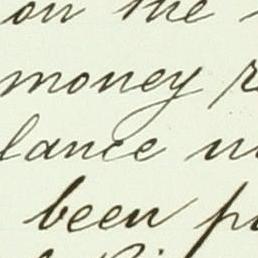 on the
money
lance
been